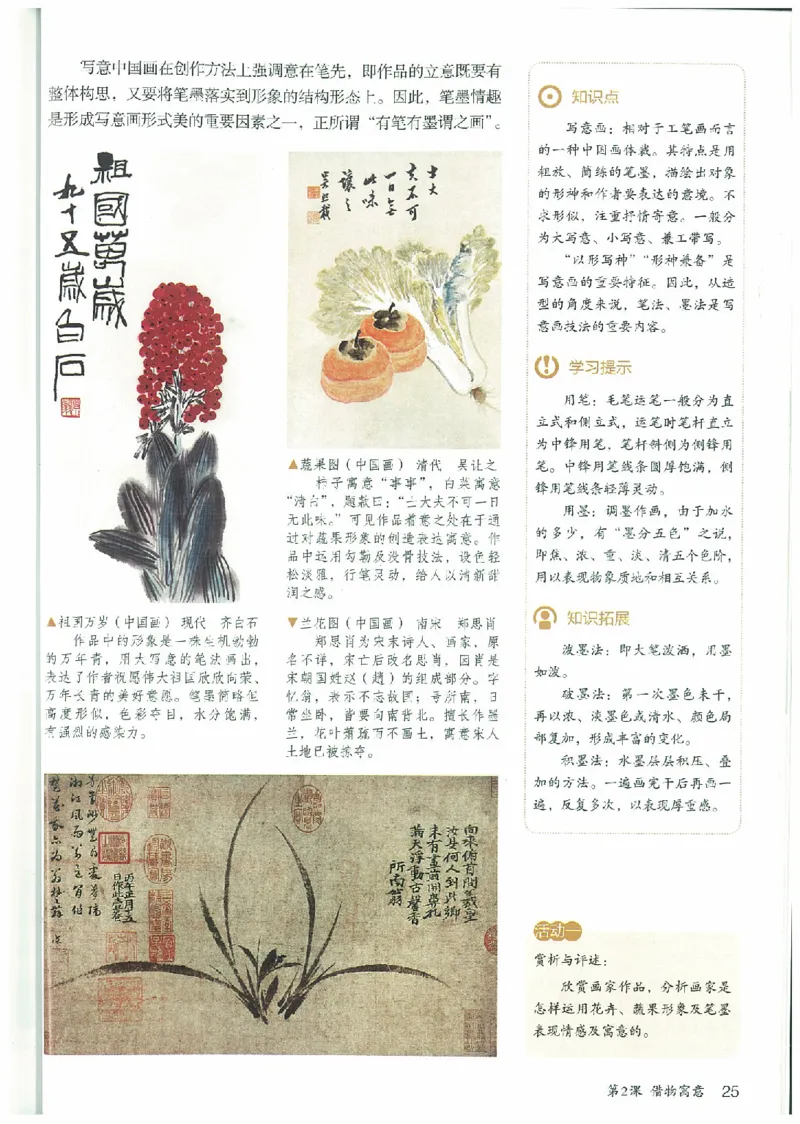 写意中国画在创作方法上强调意在笔先，即作品的立意既要有
整体构思，又要将笔墨落实到形象的结构形态上。因此，笔墨情趣
是形成写意画形式美的重要因素之一，正所谓“有笔有墨谓之画”。
祖國萬歲
九十五歲白石
士大
夫不可
一日無
此味
讓之
▲蔬果图（中国画） 清代 吴让之
柿子寓意“事事”，白菜寓意
“清白”，题款曰：“士大夫不可一日
无此味。”可见作品着意之处在于通
过对蔬果形象的创造表达寓意。作
品中运用勾勒及没骨技法，设色轻
松淡雅，行笔灵动，给人以清新甜
润之感。
▲祖国万岁（中国画） 现代 齐白石
作品中的形象是一株生机勃勃
的万年青，用大写意的笔法画出，
表达了作者祝愿伟大祖国欣欣向荣、
万年长青的美好意愿。笔墨简略但
高度形似，色彩夺目，水分饱满，
有强烈的感染力。
▼兰花图（中国画） 南宋 郑思肖
郑思肖为宋末诗人、画家，原
名不详，宋亡后改名思肖，因肖是
宋朝国姓赵（趙）的组成部分。字
忆翁，表示不忘故国；号所南，日
常坐卧，皆要向南背北。擅长作墨
兰，花叶萧疏而不画土，寓意宋人
土地已被掠夺。
向來俯首問羲皇
汝是何人到此鄉
未有畫前開鼻孔
滿天浮動古馨香
所南翁
正月十五
日作此壹卷
知识点
写意画：相对于工笔画而言
的一种中国画体裁。其特点是用
粗放、简练的笔墨，描绘出对象
的形神和作者要表达的意境。不
求形似，注重抒情寄意。一般分
为大写意、小写意、兼工带写。
“以形写神”“形神兼备”是
写意画的重要特征。因此，从造
型的角度来说，笔法、墨法是写
意画技法的重要内容。
学习提示
用笔：毛笔运笔一般分为直
立式和侧立式，运笔时笔杆直立
为中锋用笔，笔杆斜侧为侧锋用
笔。中锋用笔线条圆厚饱满，侧
锋用笔线条轻薄灵动。
用墨：调墨作画，由于加水
的多少，有“墨分五色”之说，
即焦、浓、重、淡、清五个色阶，
用以表现物象质地和相互关系。
知识拓展
泼墨法：即大笔泼洒，用墨
如泼。
破墨法：第一次墨色未干，
再以浓、淡墨色或清水、颜色局
部复加，形成丰富的变化。
积墨法：水墨层层积压、叠
加的方法。一遍画完干后再画一
遍，反复多次，以表现厚重感。
活动一
赏析与评述：
欣赏画家作品，分析画家是
怎样运用花卉、蔬果形象及笔墨
表现情感及寓意的。
第2课 借物寓意 25